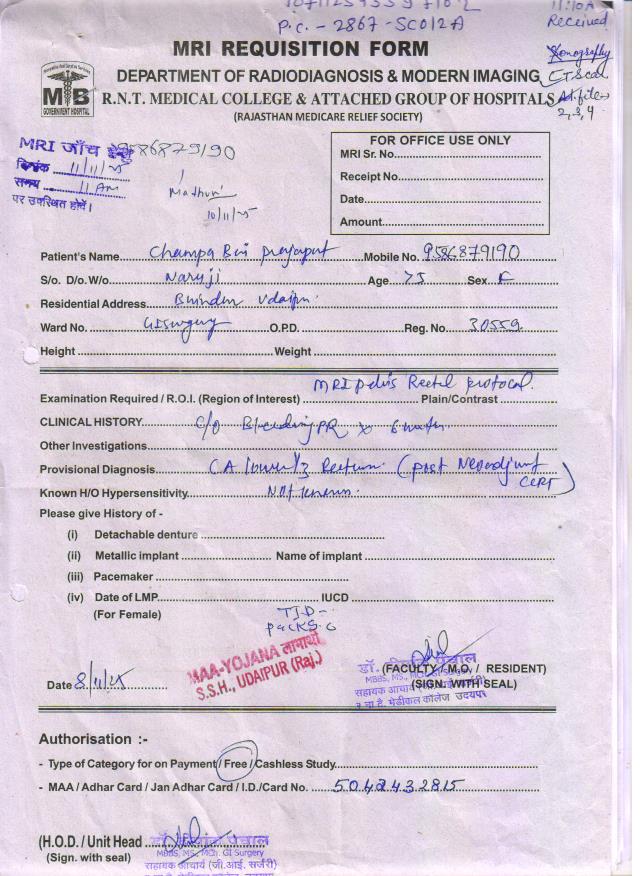 P.C. - 2867 - SC012A
11:10A
Received
Sonography
CT Scan
2,3,4
MRI REQUISITION FORM
DEPARTMENT OF RADIODIAGNOSIS & MODERN IMAGING
R.N.T. MEDICAL COLLEGE & ATTACHED GROUP OF HOSPITALS
(RAJASTHAN MEDICARE RELIEF SOCIETY)
MB
GOVERNMENT HOSPITAL
MRI जाँच हेतु 9586879190
दिनांक 11/11/25
समय 11 AM
पर उपस्थित होवें।
10/11/25
FOR OFFICE USE ONLY
MRI Sr. No.
Receipt No.
Date
Amount
Patient's Name Champa Bai Prajapat Mobile No. 9586879190
S/o. D/o. W/o. Naruji Age 75 Sex F
Residential Address Bhinder Udaipur
Ward No. GI Surgery O.P.D. Reg. No. 30559
Height Weight
Examination Required / R.O.I. (Region of Interest) MRI pelvis Rectal protocal. Plain/Contrast
CLINICAL HISTORY C/o Bleeding PR x 6
Other Investigations
Provisional Diagnosis CA lower 1/3 Rectum (post Neoadjuvant CCRT)
Known H/O Hypersensitivity Not known
Please give History of -
(i) Detachable denture
(ii) Metallic implant Name of implant
(iii) Pacemaker
(iv) Date of LMP IUCD
(For Female)
TID
PACKS
MAA-YOJANA लाभार्थी
S.S.H., UDAIPUR (Raj.)
Date 8/11/25
(FACULTY / M.O. / RESIDENT)
(SIGN. WITH SEAL)
डॉ. पंचाल
MBBS, MS, MCh. GI Surgery
सहायक आचार्य (जी.आई. सर्जरी)
र.ना.टै. मेडीकल कॉलेज उदयपुर
Authorisation :-
- Type of Category for on Payment / Free / Cashless Study
- MAA / Adhar Card / Jan Adhar Card / I.D./Card No. 5042432815
(H.O.D. / Unit Head
(Sign. with seal)
डॉ. पंचाल
MBBS, MS, MCh. GI Surgery
सहायक आचार्य (जी.आई. सर्जरी)